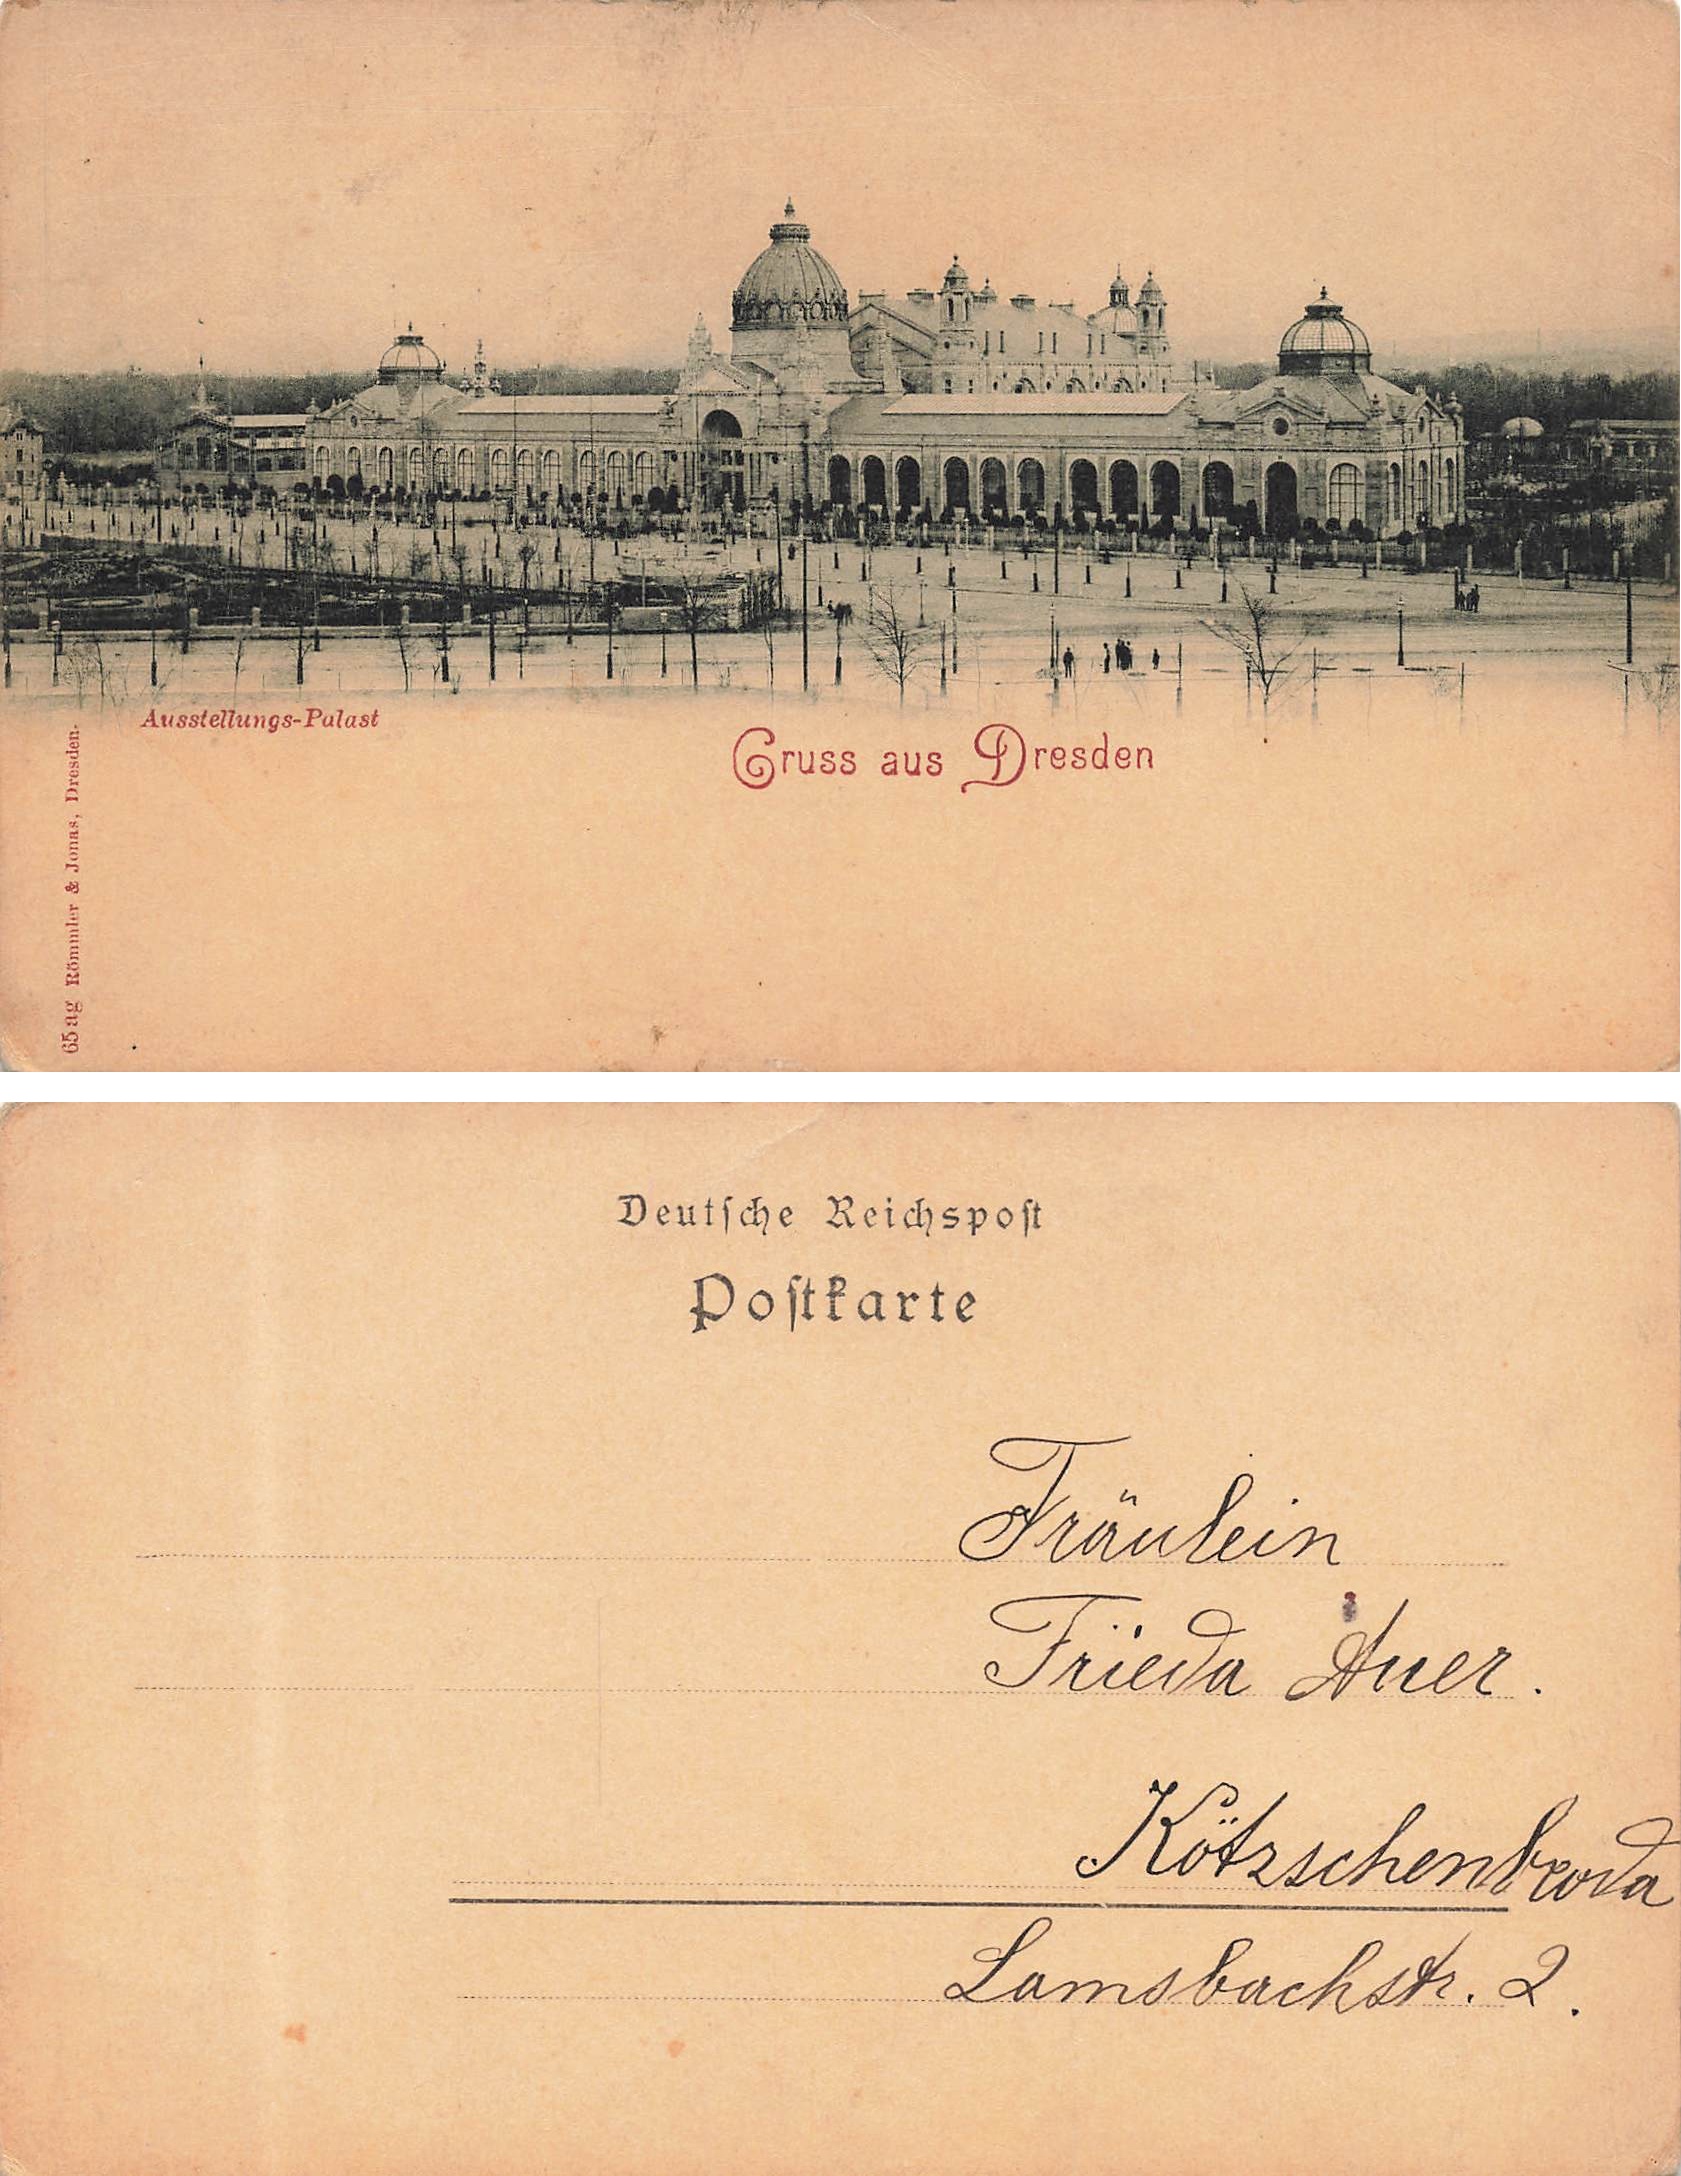 Ausstellungs-Palast
Gruss aus Dresden
65 ag Römmler & Jonas, Dresden.
Deutſche Reichspoſt
Poſtkarte
Fräulein
Frieda Auer.
Kötzschenbroda
Lamsbachstr. 2.